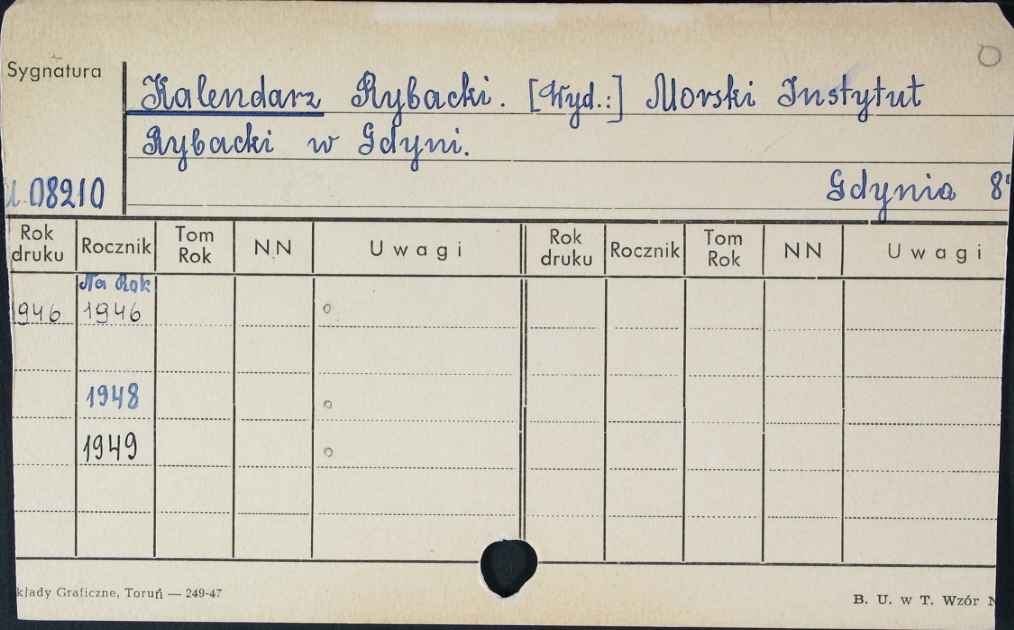 Sygnatura
Kalendarz Rybacki. [Wyd.:] Morski Instytut
Rybacki w Gdyni.
08210
Gdynia 8°
Rok druku Rocznik Tom Rok NN Uwagi Rok druku Rocznik Tom Rok NN Uwagi
Na Rok
1946 1946
1948
1949
kłady Graficzne, Toruń — 249-47
B. U. w T. Wzór